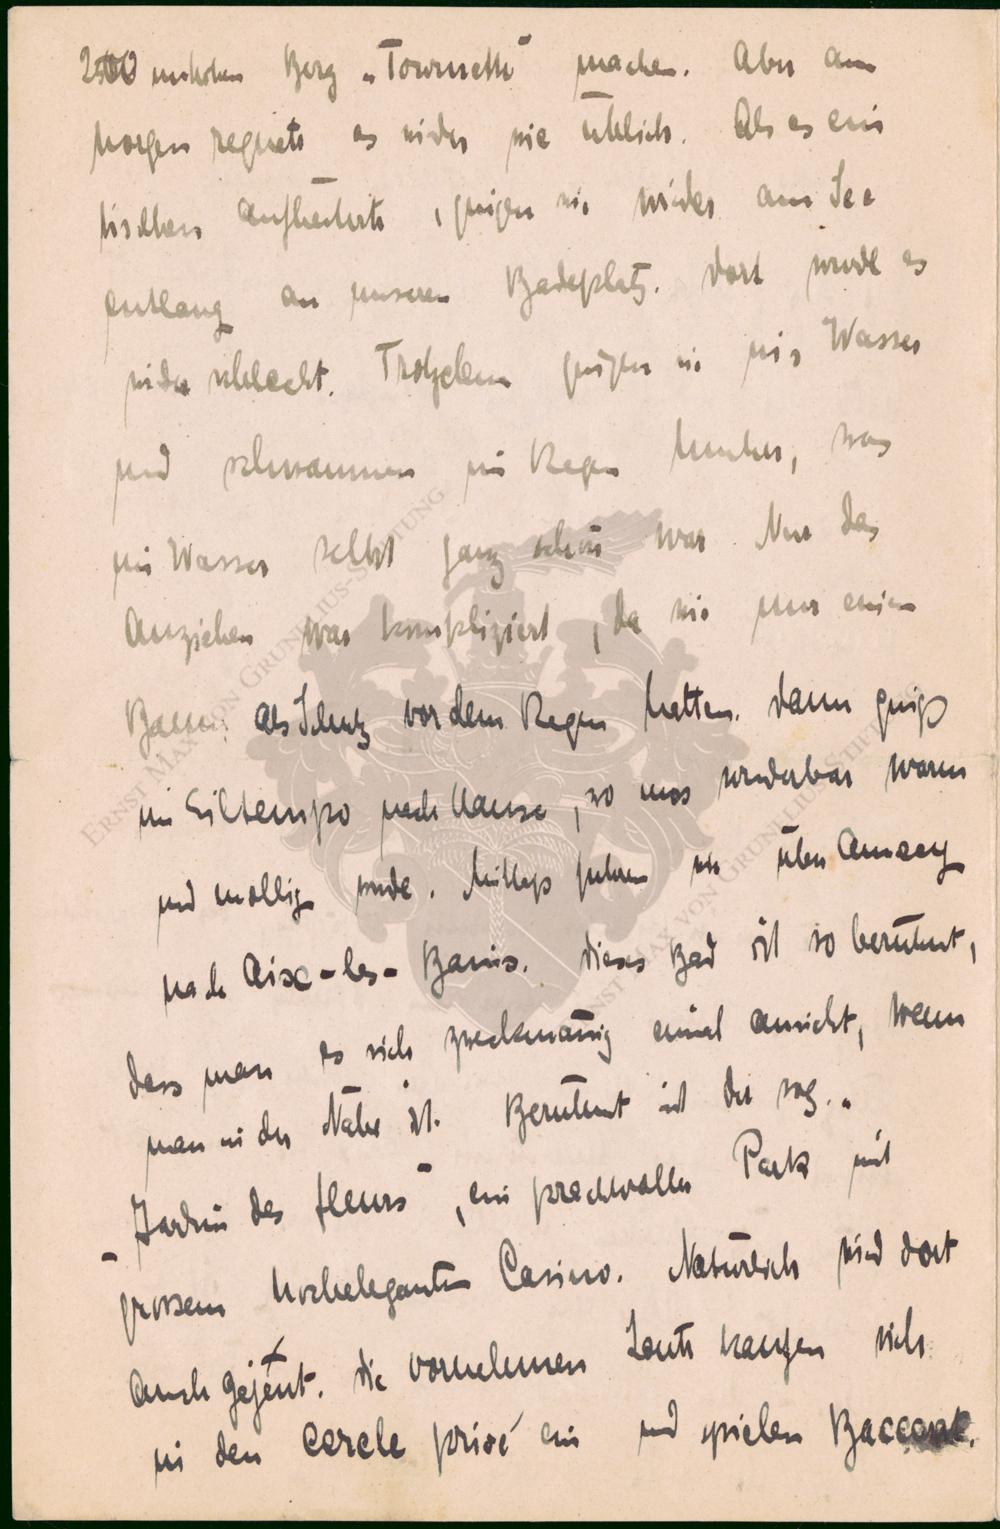 2500 m hohen Berg „Tournette" machen. Aber am
Morgen regnete es wieder wie üblich. Als es ein
bisschen aufheiterte, gingen wir wieder am See
entlang an unseren Badeplatz. Dort wurde es
wieder schlecht. Trotzdem gingen wir ins Wasser
und schwammen im Regen umher, was
im Wasser selbst ganz schön war. Nur das
Anziehen war kompliziert, da wir nur einen
Baum als Schutz vor dem Regen hatten. Dann ging's
im Eiltempo nach Hause, so dass wunderbar warm
und mollig wurde. Mittags fuhren wir über Annecy
nach Aix-les-Bains. Dieses Bad ist so berühmt,
dass man es sich zweckmässig einmal ansieht, wenn
man in der Nähe ist. Berühmt ist der sog. „
"Jardin des fleurs", ein prachtvoller Park mit
grossem hochelegantem Casino. Natürlich sind dort
auch gejeut. Die vornehmen Leute kaufen sich
in den cercle privé ein und spielen Baccarat.
ERNST MAX VON GRUNELIUS-STIFTUNG
ERNST MAX VON GRUNELIUS-STIFTUNG